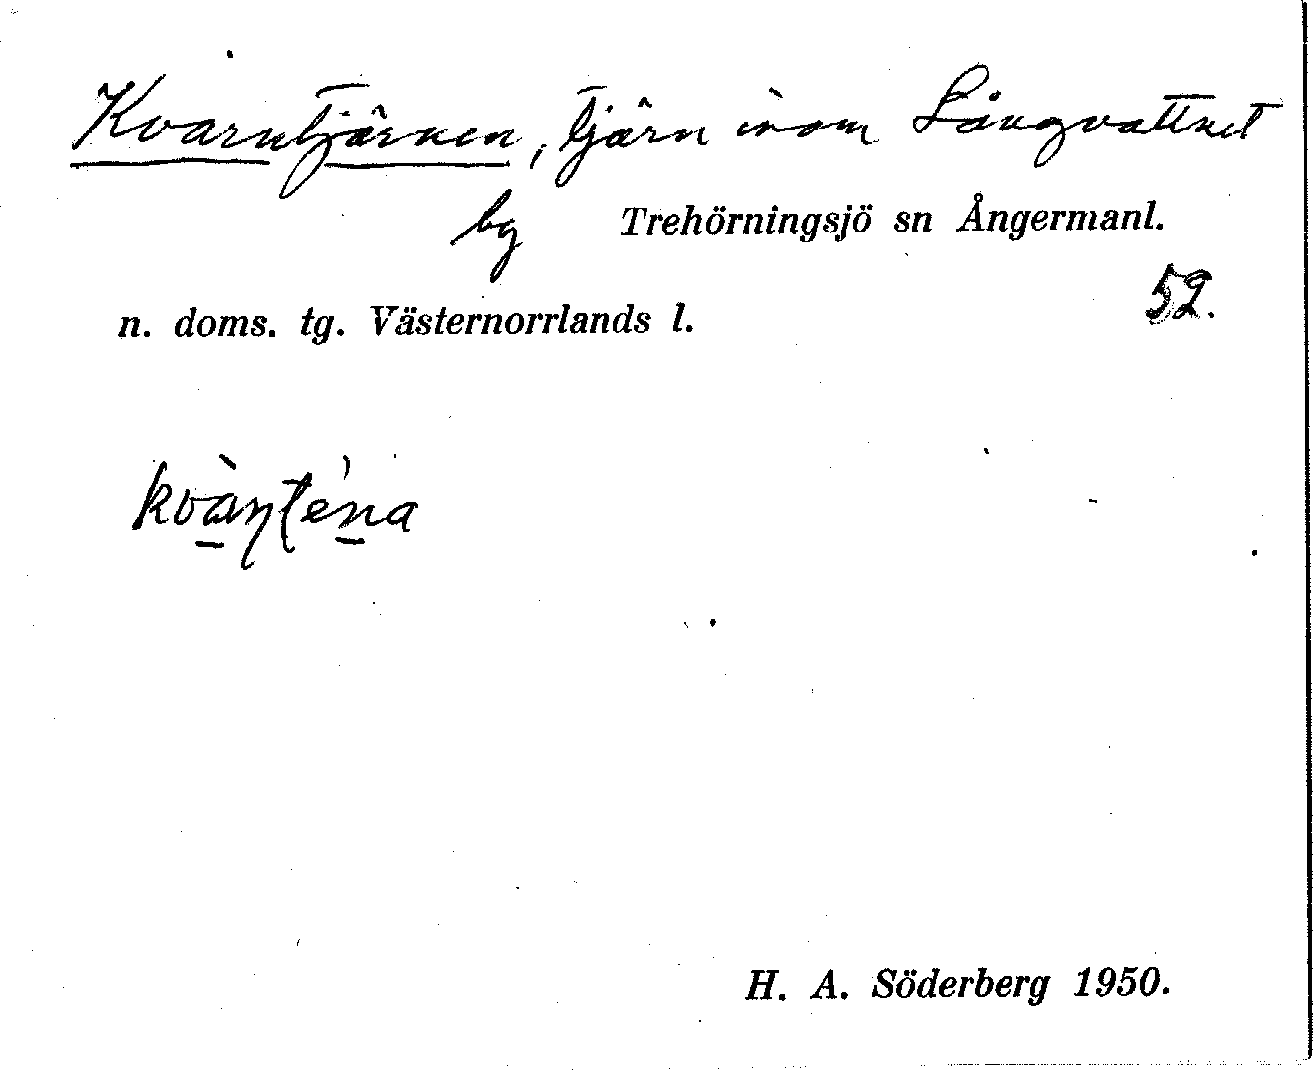 Kvarntjärnen, tjärn inom Långvattnet
by Trehörningsjö sn Ångermanl.
52.
n. doms. tg. Västernorrlands l.
kvànténa
H. A. Söderberg 1950.